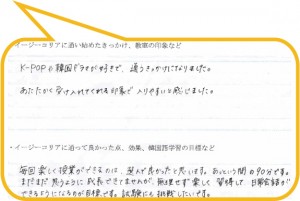 ・イージーコリアに通い始めたきっかけ、教室の印象など
K-POPや韓国ドラマが好きで、通うきっかけになりました。
あたたかく受け入れてくれる印象で入りやすいと感じました。
・イージーコリアに通って良かった点、効果、韓国語学習の目標など
毎回楽しく授業ができるのは、選んで良かったと思います。あっという間の90分です。
まだまだ思うように成長できてませんが、無理せず楽しく習得して、日常会話が
できるようになるのが目標です。試験にも挑戦したいです。